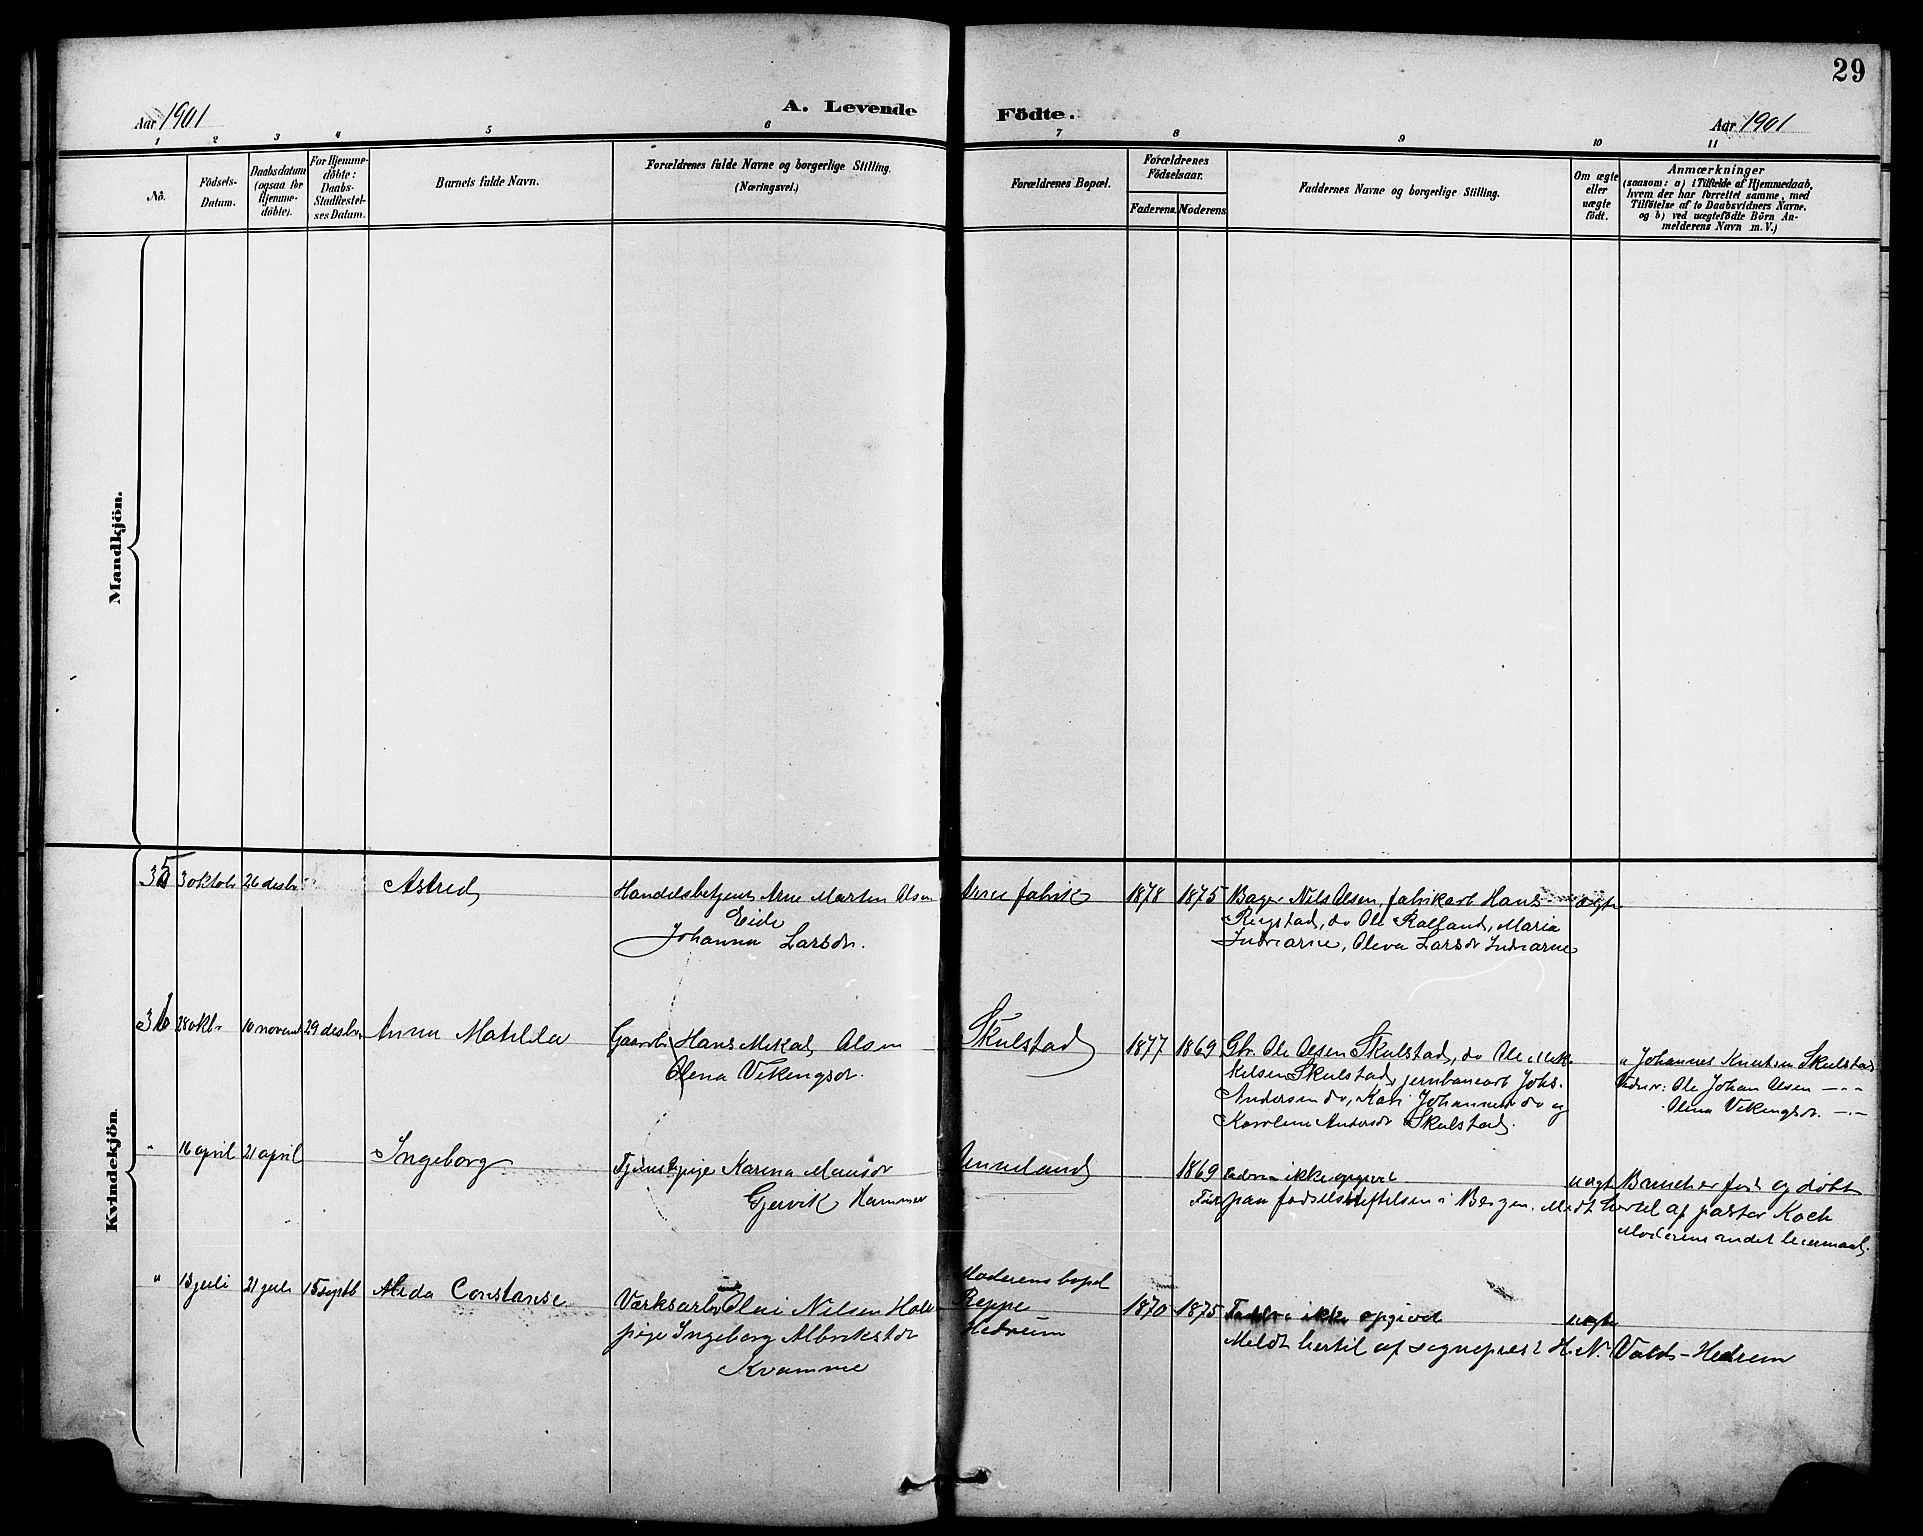 29
Aar 1901
A. Levende Födte.
Aar 1901
1 2 3 4 5 6 7 8 9 10 11
No.
Födsels-
Datum.
Daabsdatum
(ogsaa for
Hjemme-
döbte).
For Hjemme-
døbte:
Daabs-
Stadfestel-
ses Datum.
Barnets fulde Navn.
Forældrenes fulde Navne og borgerlige Stilling.
(Næringsvei.)
Forældrenes Bopæl.
Forældrenes
Födselsaar.
Faderens. Moderens.
Faddernes Navne og borgerlige Stilling.
Om ægte
eller
uægte
födt.
Anmærkninger
(saasom: a) i Tilfælde af Hjemmedaab,
hvem der har forrettet samme, med
Tilföielse af to Daabsvidners Navne.
og b) ved uægtefödte Börn An-
melderens Navn m. V.)
Mandkjön.
Kvindekjön.
35 3 oktob 26 desbr Astrid
Handelsbetjent Arne Martin Olsen
Eide
Johanna Larsdr.
Arne fabrik 1878 1875
Bager Nils Olsen, fabrikarb Hans
Rugstad, do Ole Ralland, Maria
Indrearne, Oleva Larsdr Indrearne
ægte
36 28 okt. 10 novemb 29 desbr Anna Matilda
Gaardbr Hans Mikal Olsen
Olena Vikingsdr.
Skulstad 1877 1869
Gbr. Ole Olsen Skulstad, do Ole Mik-
kelsen Skulstad, jernbanearb Johs.
Andersen do, Kari Johannesdr do og
Karoline Andersdr Skulstad.
a Johannes Knutsen Skulstad
Vidner: Ole Johan Olsen -"-
Olena Vikingsdr. -"-
" 16 april 21 april Ingeborg
Tjenestepige Karina Monsdr
Gjervik Hammer
Unneland 1869
Faderen ikke opgivet
Født paa fødselsstiftelsen i Bergen. Meldt hertil af pastor Koch
uægte
Barnet er født og døbt
Moderens andet leiermaal.
" 13 juli 21 juli 15 septb Alida Constanse
Værksarb. Olai Nilsen Hole
pige Ingeborg Albrektsdr
Kvamme
Moderens bopel
Reppe
Hedrum
1870 1875
Faddere ikke opgivet
uægte
Meldt hertil af sognepræst H. N. Valds-Hedrem